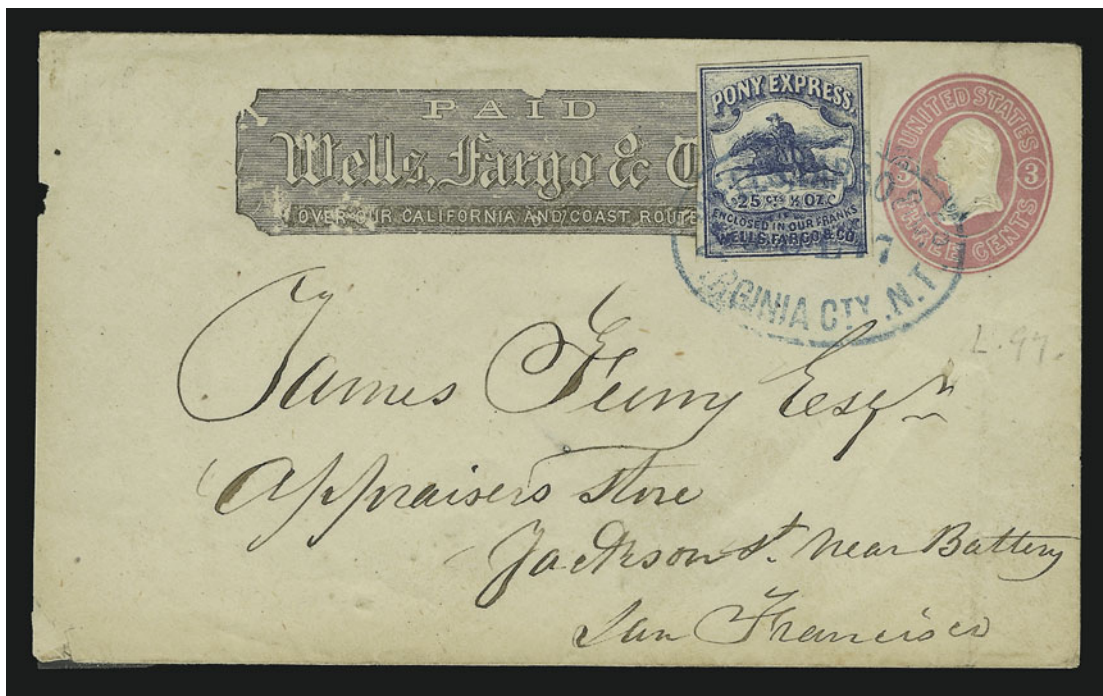 PAID
Wells, Fargo & C
OVER OUR CALIFORNIA AND COAST ROUTE
PONY EXPRESS.
25 CTS ½ OZ.
ENCLOSED IN OUR FRANKS
WELLS, FARGO & CO.
UNITED STATES
3 3
THREE CENTS
VIRGINIA CTY. N.T.
L.97.
James Esqr
Appraisers Store
Jackson St. Near Battery
San Francisco